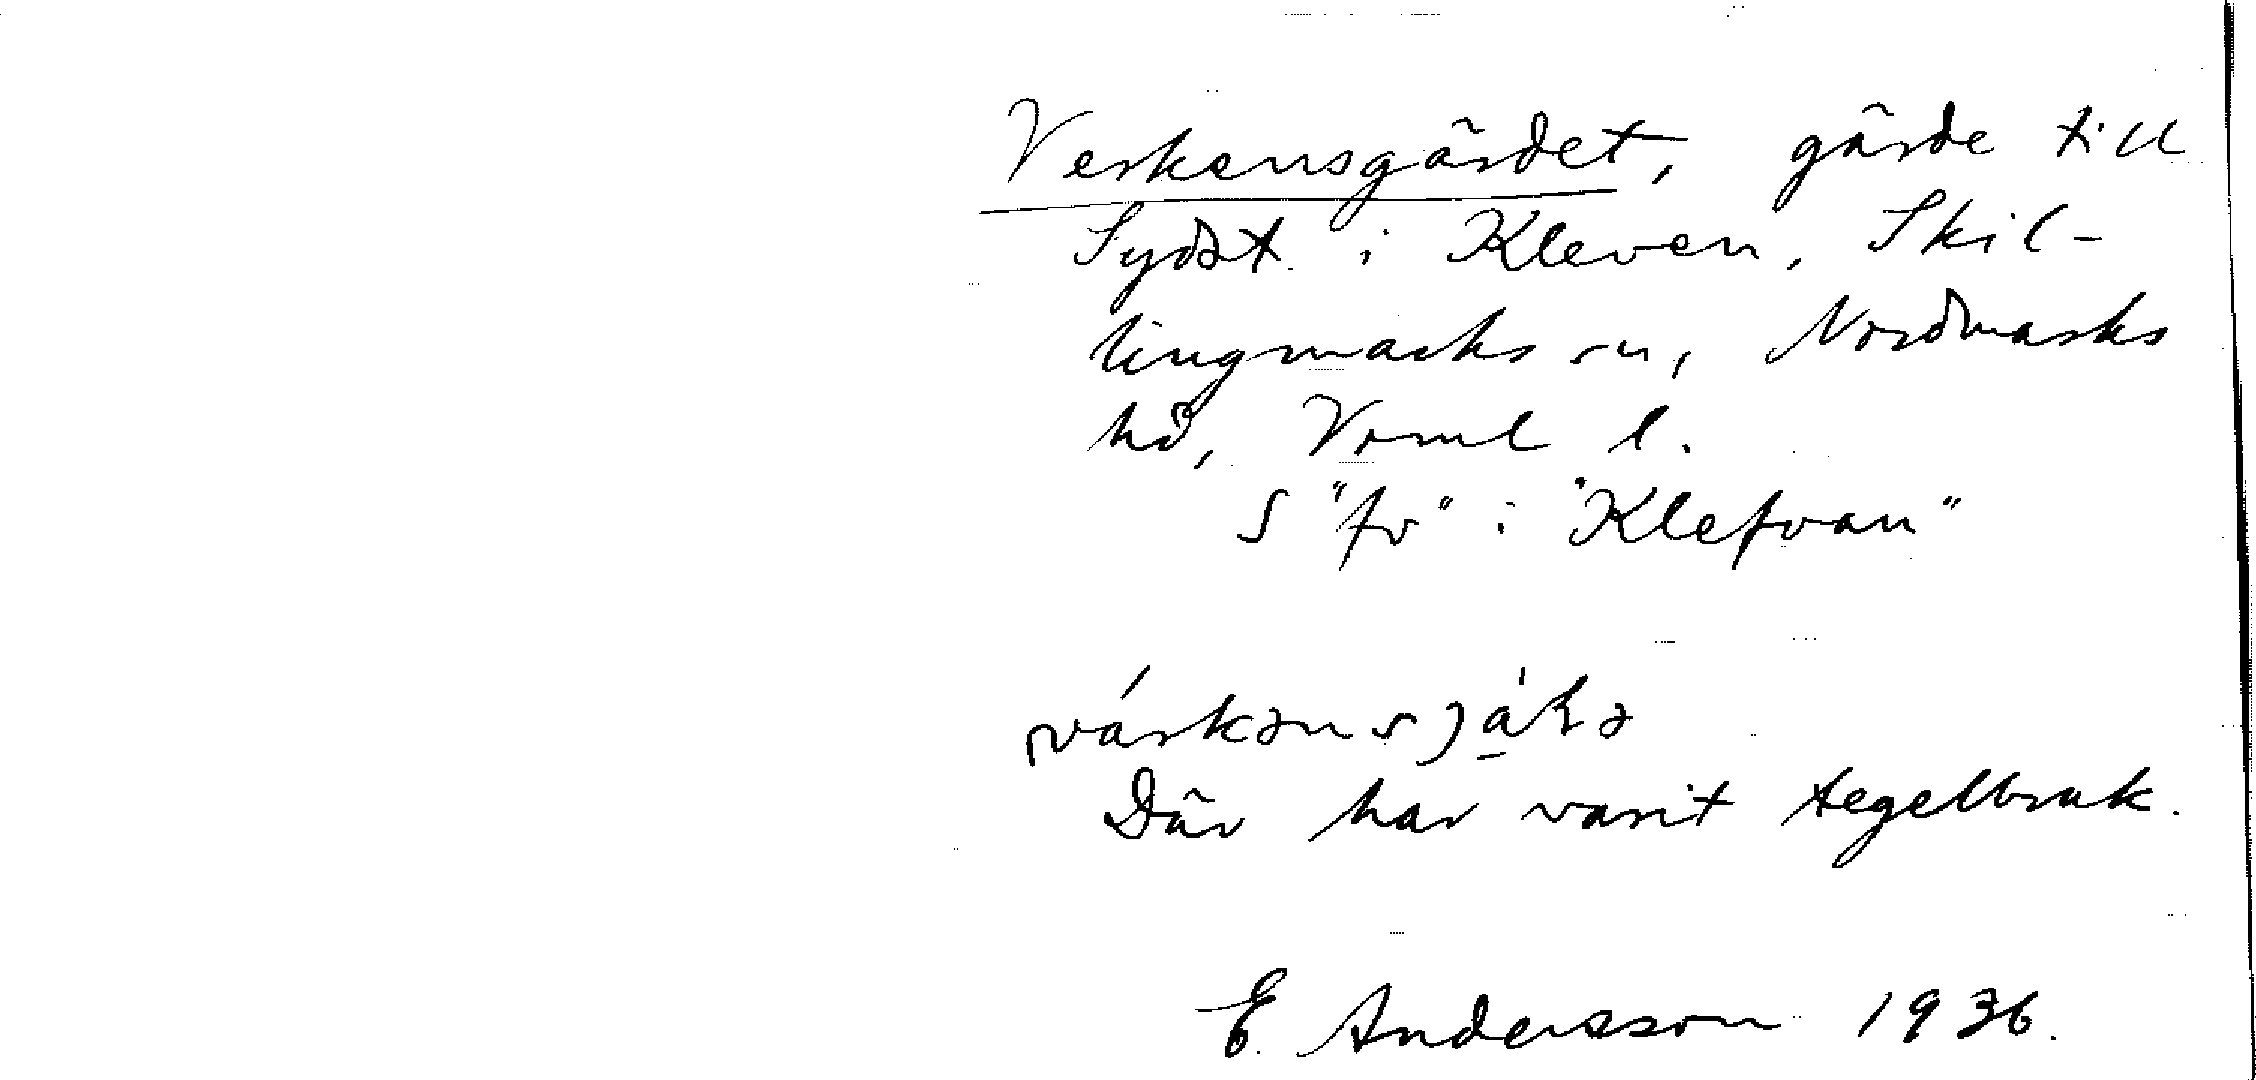 Verkensgärdet, gärde till
Sydst. i Kleven, Skil-
lingmarks sn, Nordmarks
hd, Vrml l.
S "fv" i "Klefvan"
Där har varit tegelbruk.
E. Andersson 1936.